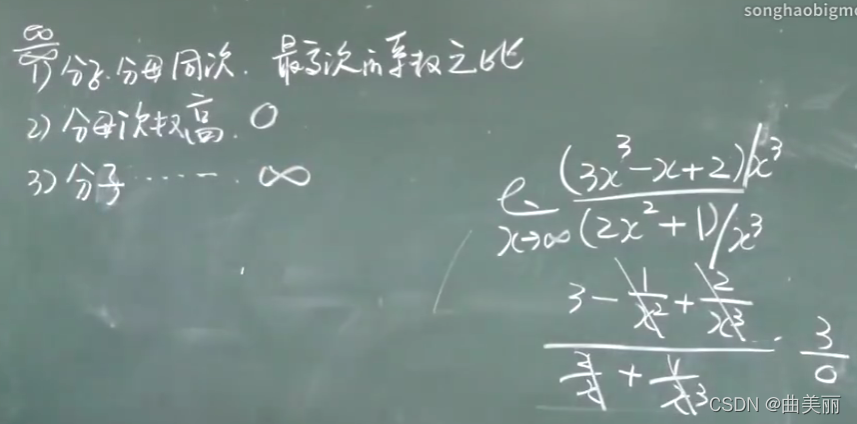 songhaobigme
∞/∞
1) 分子.分母同次. 最高次的系数之比
2) 分母次数高. 0
3) 分子 ······ . ∞
lim x→∞ (3x³-x+2)/x³
(2x²+1)/x³
3 - 1/x² + 2/x³
2/x + 1/x³
3/0
CSDN @曲美丽